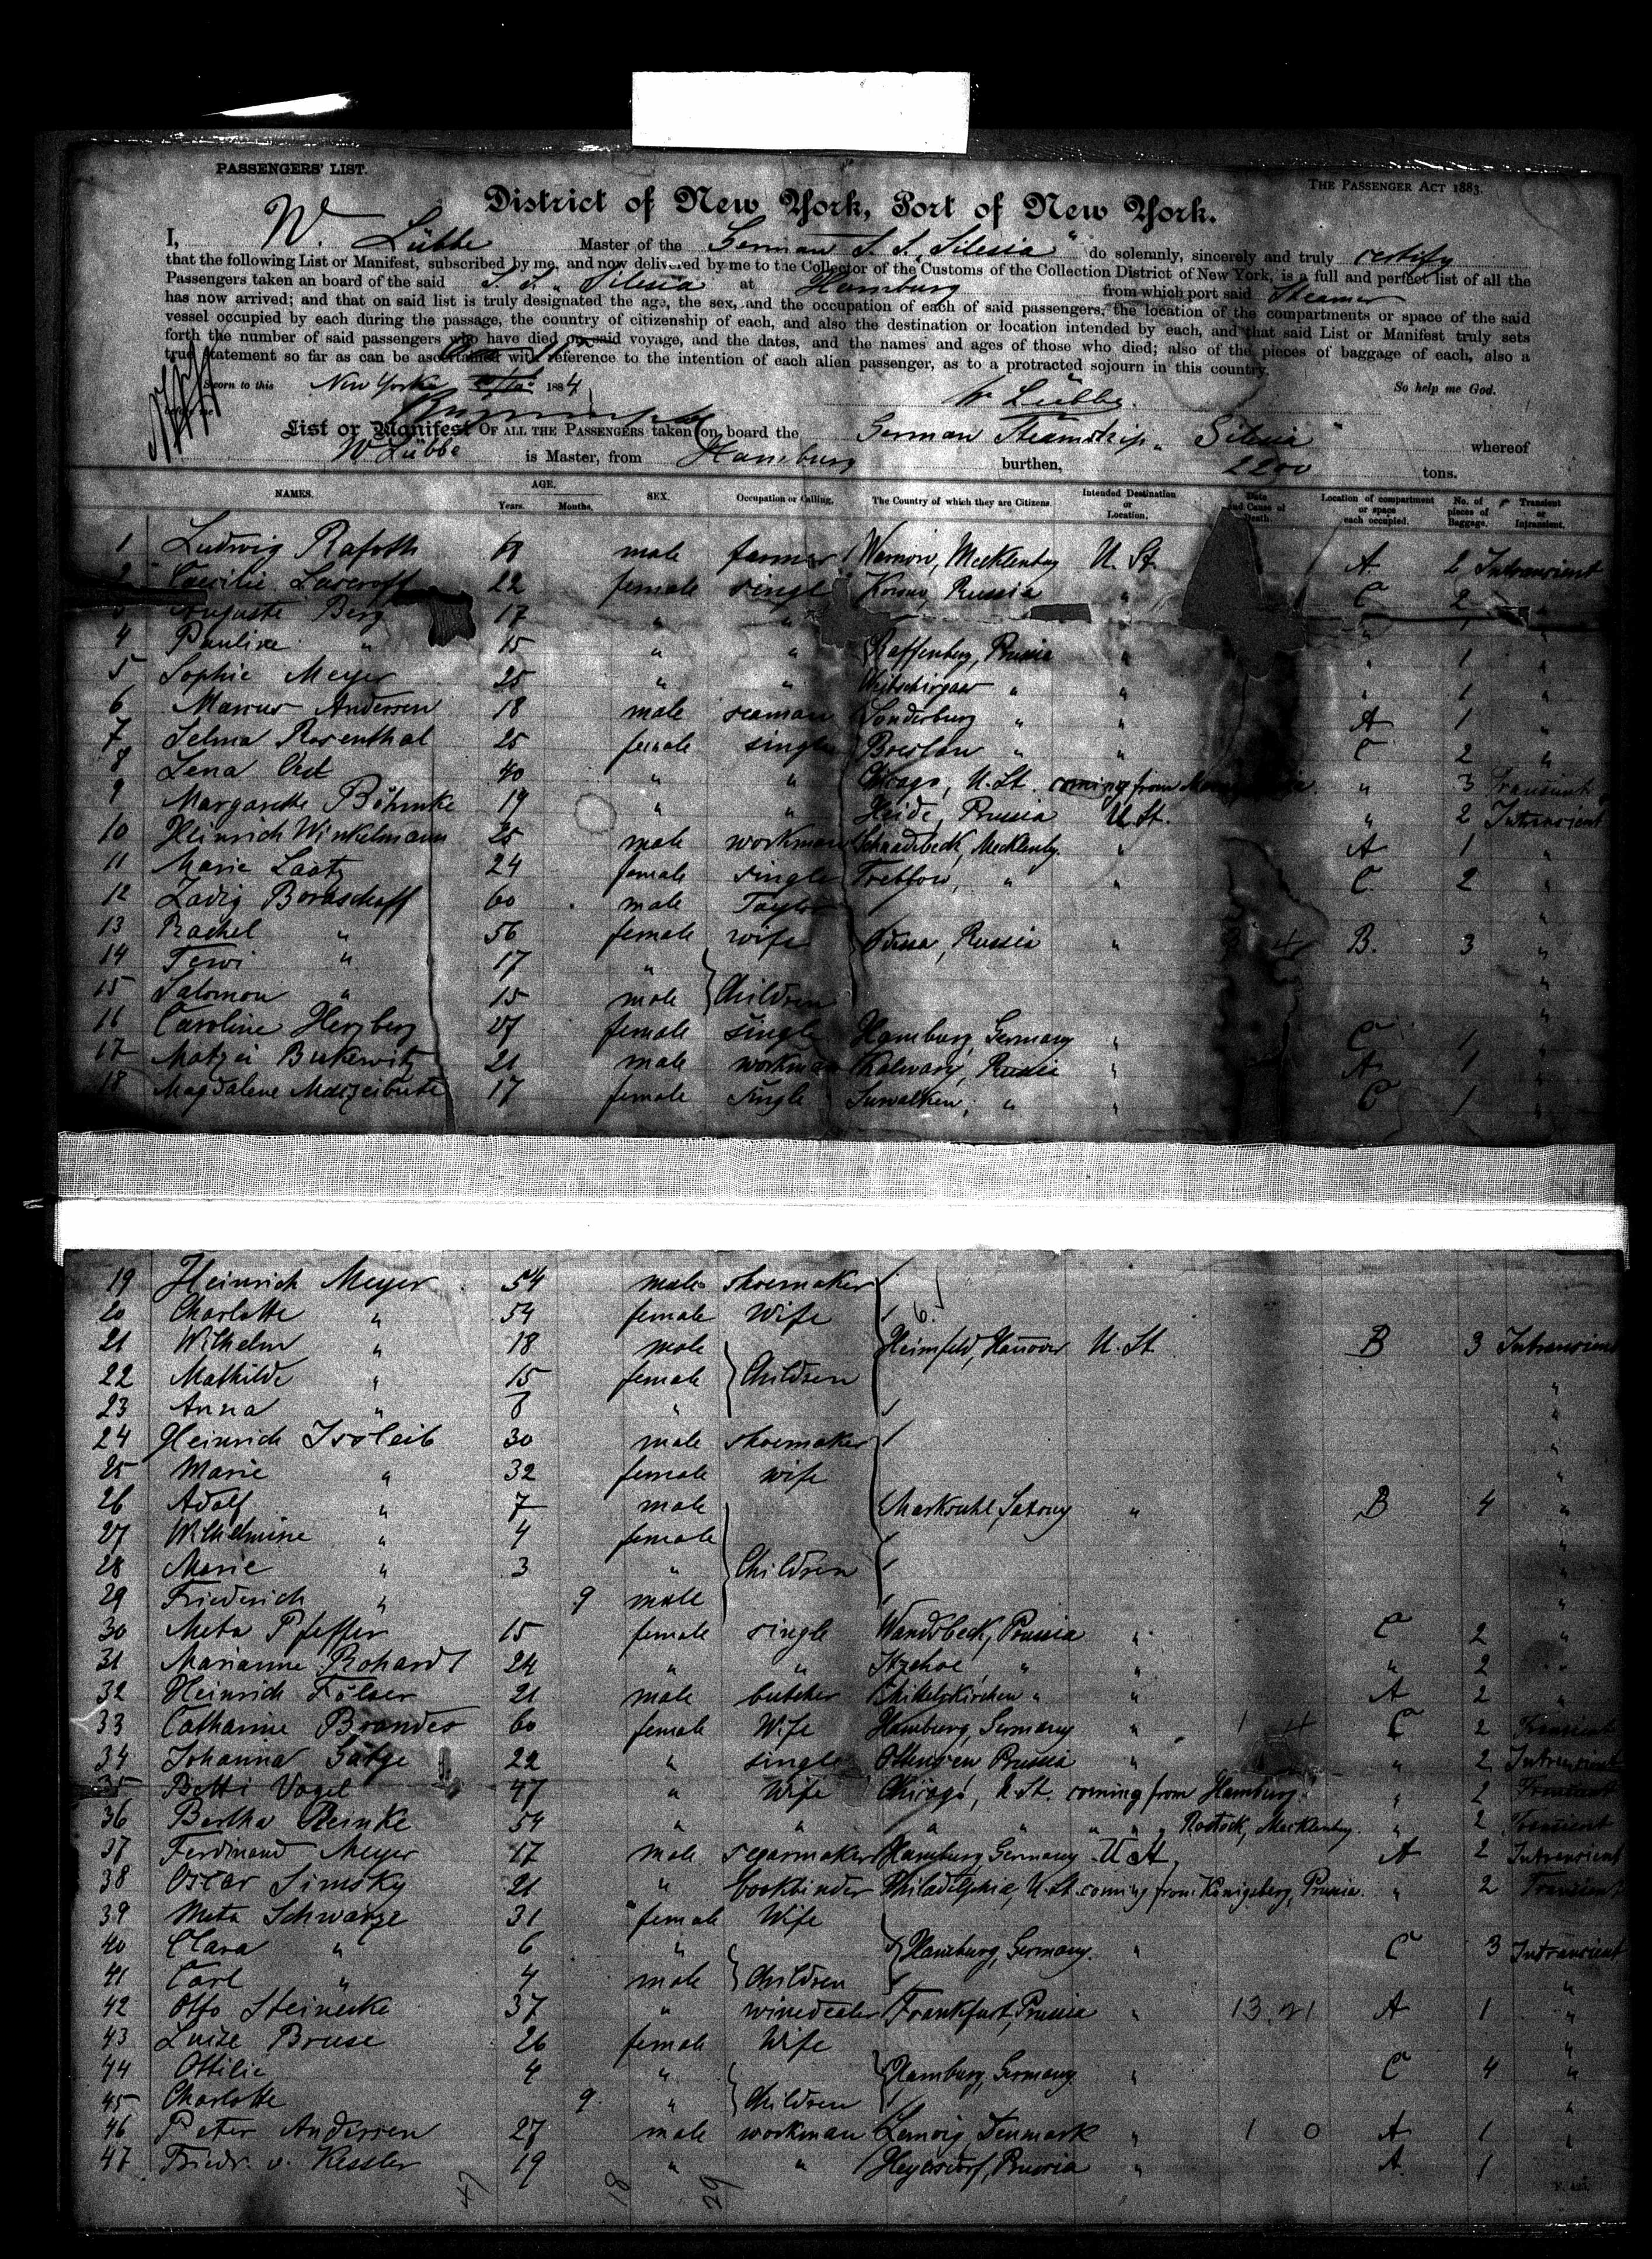 PASSENGERS' LIST.
THE PASSENGER ACT 1883.
District of New York, Port of New York.
I, W. Lübbe Master of the German S. S. "Silesia" do solemnly, sincerely and truly certify
that the following List or Manifest, subscribed by me, and now delivered by me to the Collector of the Customs of the Collection District of New York, is a full and perfect list of all the
Passengers taken on board of the said S. S. "Silesia at Hamburg from which port said Steamer
has now arrived; and that on said list is truly designated the age, the sex, and the occupation of each of said passengers, the location of the compartments or space of the said
vessel occupied by each during the passage, the country of citizenship of each, and also the destination or location intended by each, and that said List or Manifest truly sets
forth the number of said passengers who have died on said voyage, and the dates, and the names and ages of those who died; also of the pieces of baggage of each, also a
true statement so far as can be ascertained with reference to the intention of each alien passenger, as to a protracted sojourn in this country.
Sworn to this New York 1884 So help me God.
before me W Lübbe.
List or Manifest OF ALL THE PASSENGERS taken on board the German Steamship "Silesia" whereof
W Lübbe is Master, from Hamburg burthen, 2200 tons.
NAMES. AGE. Years. Months. SEX. Occupation or Calling. The Country of which they are Citizens. Intended Destination or Location. Date and Cause of Death. Location of compartment or space each occupied. No. of pieces of Baggage. Transient or Intransient.
1 Ludwig Rafoth male farmer Warnow, Mecklenburg U. St. A 2 Intransient
2 Caecilie 22 female single Russia " C 2 "
3 Auguste Berg 17 " " " "
4 Pauline " 15 " " Raffenberg, Prussia " " 1 "
5 Sophie Meyer 25 " " " " " 1 "
6 Marcus Andersen 18 male seaman Sonderburg " " A 1 "
7 Selma Rosenthal 25 female single Breslau " " C 2 "
8 Lena 40 " " Chicago, U. St. coming from " 3 Transient
9 Margarethe Böhmke 19 " " Heide, Prussia U. St. " 2 Intransient
10 Heinrich Winkelmann 25 male workman Mecklenbg. " A 1 "
11 Marie Laatz 24 female single Trebbow, " " C 2 "
12 Zadig Bordaschoff 60 male Taylor "
13 Rachel " 56 female wife Odessa, Russia " B. 3 "
14 Tewi " 17 " "
15 Salomon " 15 male Children "
16 Caroline Herzberg 27 female single Hamburg, Germany " C 1 "
17 Matzei Bukewitz 21 male workman Kalwary, Russia " A 1 "
18 Magdalene Matzeibute 17 female single Suwalken, " " C 1 "
19 Heinrich Meyer 54 male shoemaker
20 Charlotte " 54 female Wife
21 Wilhelm " 18 male Heimfeld, Hanover U. St. B 3 Intransient
22 Mathilde " 15 female Children "
23 Anna " 8 " "
24 Heinrich Isoleib 30 male shoemaker "
25 Marie " 32 female wife "
26 Adolf " 7 male Marksuhl, Saxony " B 4 "
27 Wilhelmine " 4 female "
28 Marie " 3 " Children "
29 Friederich " 9 male "
30 Meta Pfeffer 15 female single Wandsbeck, Prussia " C 2 "
31 Marianne Rohardt 24 " " Itzehoe, " " " 2 "
32 Heinrich Fölser 21 male butcher " " A 2 "
33 Catharine Brandes 60 female Wife Hamburg, Germany " 1 4 C 2 Transient
34 Johanna Gätge 22 " single Ottensen Prussia " " 2 Intransient
35 Betti Vogel 47 " Wife Chicago, U. St. coming from Hamburg. " 2 Transient
36 Bertha Reinke 54 " " " " " " Rostock, Mecklenbg. " 2 Transient
37 Ferdinand Meyer 17 male segarmaker Hamburg, Germany U. St. A 2 Intransient
38 Oscar Simsky 21 " bookbinder Philadelphia, U. St. coming from Königsberg, Prussia. " 2 Transient
39 Meta Schwarze 31 female Wife
40 Clara " 6 " Hamburg, Germany. " C 3 Intransient
41 Carl " 4 male Children "
42 Otto Steinecke 37 " winedealer Frankfurt, Prussia " A 1 "
43 Luize Bruse 26 female Wife "
44 Ottilie 4 " Hamburg, Germany " C 4 "
45 Charlotte 9 " Children "
46 Peter Andersen 27 male workman Lemvig Denmark " 1 0 A 1 "
47 Friedr. v. Kessler 19 " " Heyersdorf, Prussia " A 1 "
47 18 29